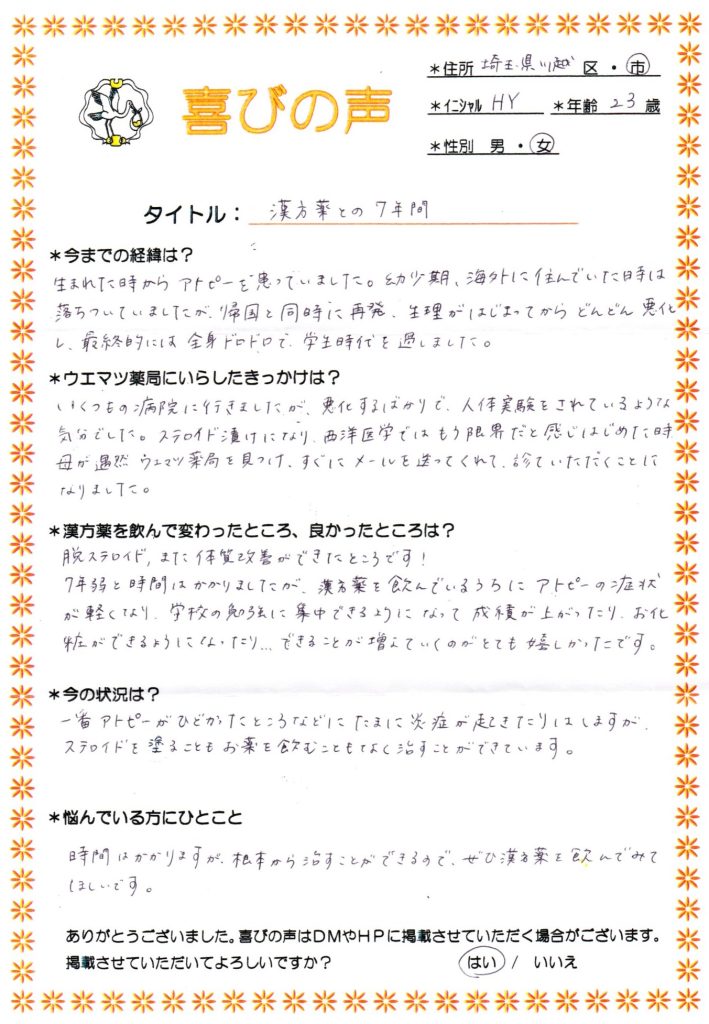 喜びの声
*住所 埼玉県川越 区・市
*イニシャル HY *年齢 23 歳
*性別 男・女
タイトル: 漢方薬との7年間
*今までの経緯は?
生まれた時からアトピーを患っていました。幼少期、海外に住んでいた時は
落ちついていましたが、帰国と同時に再発、生理がはじまってからどんどん悪化
し、最終的には全身ドロドロで、学生時代を過しました。
*ウエマツ薬局にいらしたきっかけは?
いくつもの病院に行きましたが、悪化するばかりで、人体実験をされているような
気分でした。ステロイド漬けになり、西洋医学ではもう限界だと感じはじめた時
母が偶然ウエマツ薬局を見つけ、すぐにメールを送ってくれて、診ていただくことに
なりました。
*漢方薬を飲んで変わったところ、良かったところは?
脱ステロイド,また体質改善ができたところです!
7年弱と時間はかかりましたが、漢方薬を飲んでいるうちにアトピーの症状
が軽くなり、学校の勉強に集中できるようになって成績が上がったり、お化
粧ができるようになったり...できることが増えていくのがとても嬉しかったです。
*今の状況は?
一番アトピーがひどかったところなどにたまに炎症が起きたりはしますが、
ステロイドを塗ることもお薬を飲むこともなく治すことができています。
*悩んでいる方にひとこと
時間はかかりますが、根本から治すことができるので、ぜひ漢方薬を飲んでみて
ほしいです。
ありがとうございました。喜びの声はDMやHPに掲載させていただく場合がございます。
掲載させていただいてよろしいですか? はい / いいえ